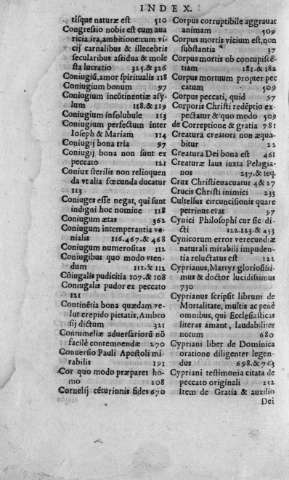 INDEX.
tisque naturæ est 510
Congressio nobis est cum aua
ricia, ira, ambitione: cum vi
cij carnalibus & illecebris
secularibus assidua & mole
sta luctatio 325. & 326
Coniugiū, amor spiritualis 118
Coniugium bonum 97
Coniugium incōtinentiæ asy
lum 118. & 119
Coniugium insolubile 113
Coniugium perfectum inter
Ioseph & Mariam 114
Coniugij bona tria 97
Coniugij bona non sunt ex
peccato 122
Coniux sterilis non relinquen
da vt alia fœcunda ducatur
113
Coniuges esse negat, qui sunt
indigni hoc nomine 118
Coniugum ætas 362
Coniugum intemperantia ve
nialis 116. 467. & 468
Coniugum numerositas 112
Coniugibus quo modo vten
dum 111. & 112
Cōiugalis pudicitia 107. & 108
Coniugalis pudor ex peccato
121
Continētia bona quædam ve
lut erepido pietatis, Ambro
sij dictum 321
Contumeliæ aduersariorū nō
facilè contemnendæ 270
Conuersio Pauli Apostoli mi
rabilis 191
Cor quo modo præparet ho-
mo 208
Cornelij cēturionis fides 670
Corpus corruptibile aggrauat
animam 509
Corpus mortis vicium est, non
substantia 37
Corpus mortis ob concupiscē
tiam 183. & 182
Corpus mortuum propter pec
catum 509
Corpus peccati, quid 97
Corporis Christi redēptio ex
pectatur & quo modo 509
de Correptione & gratia 781
Creatura creatori non æqua-
bitur 22
Creatura Dei bona est 461
Creaturæ laus iuxta Pelagia-
nos 217. & seq.
Crux Christi euacuatur 4 & 27
Crucis Christi inimici 235
Cultellus circuncisionis quare
petrinus erat 37
Cynici Philosophi cur sic di-
cti 122. 123. & 433
Cynicorum error verecundiæ
naturali mirabili impuden-
tia reluctatus est 121
Cyprianus, Martyr gloriosissi-
mus & doctor lucidissimus
730
Cypriani scriptis librum de
Mortalitate, multis ac penè
omnibus, qui Ecclesiasticas
literas amant, laudabiliter
notum 680
Cypriani liber de Dominica
oratione diligenter legen-
dus 698. & 763
Cypriani testimonia citata de
peccato originali 212
Item de Gratia & auxilio
Dei